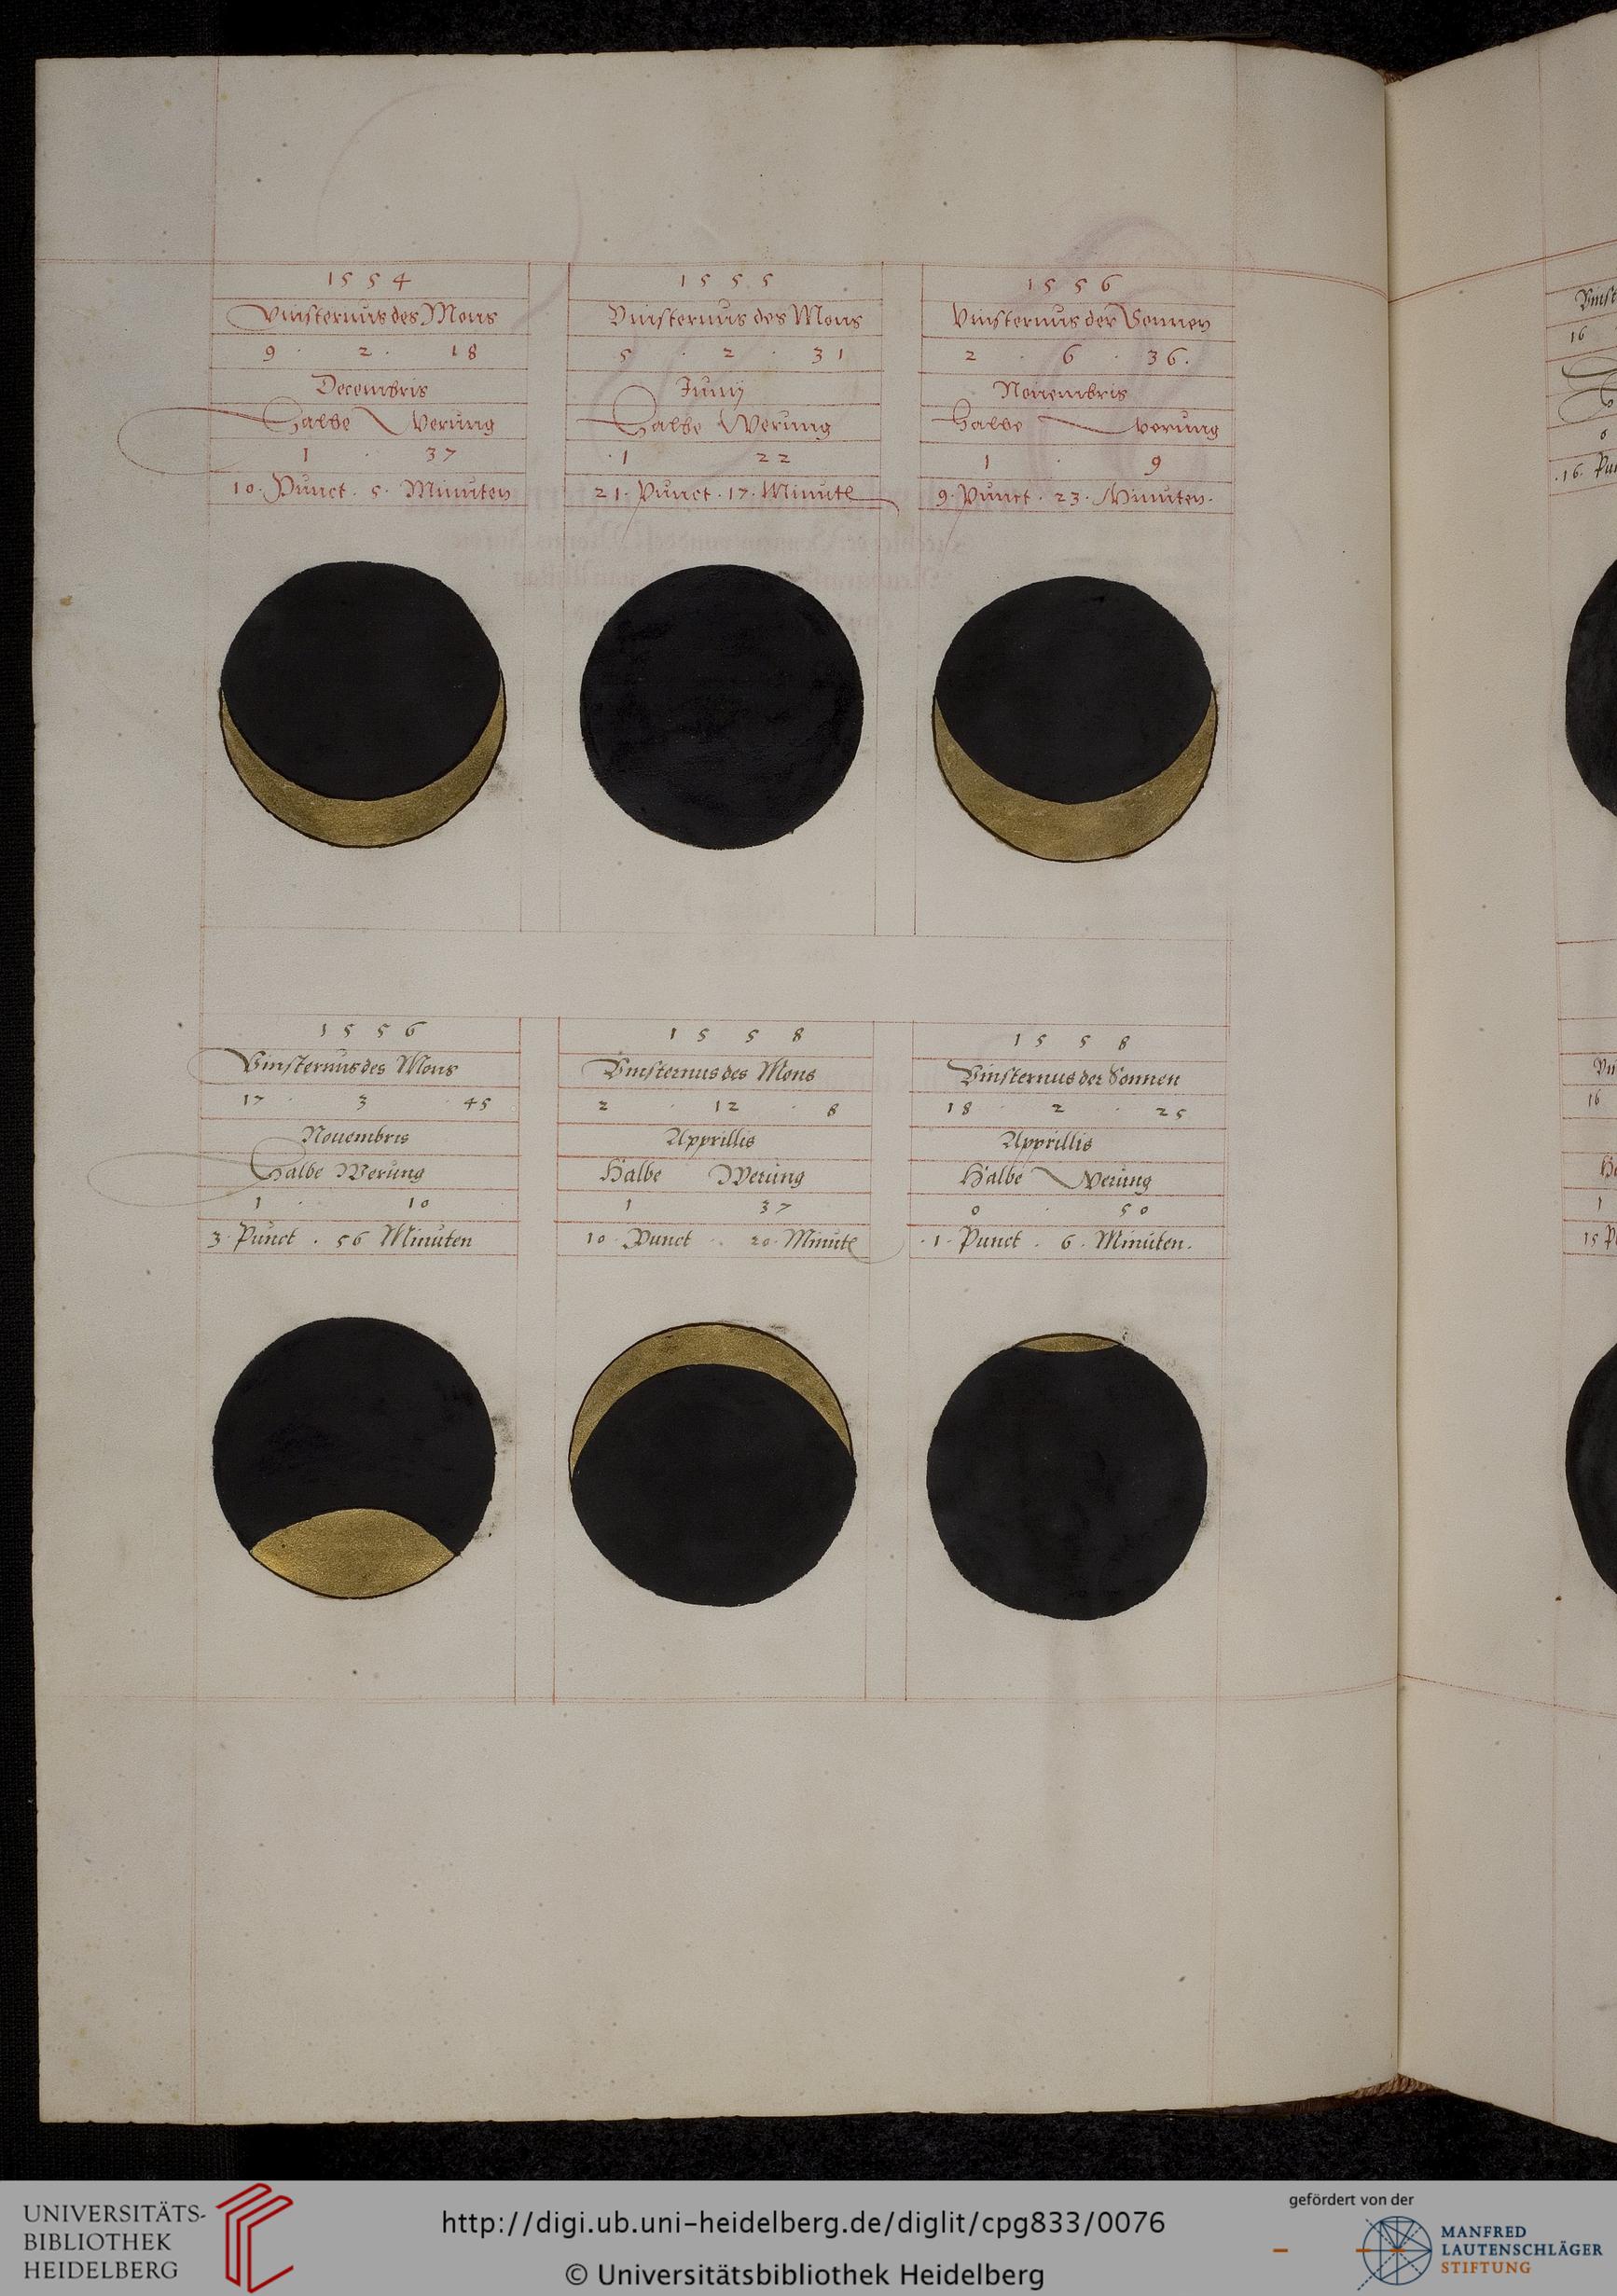 1554
Vinsternus des Mons
9 · 2 · 18
Decembris
Halbe Werung
1 · 37
10 · Punct · 5 · Minuten
1555
Vinsternus des Mons
5 · 2 · 31
Junij
Halbe Werung
· 1 22
21 · Punct · 17 · Minute
1556
Vinsternus der Sonnen
2 · 6 · 36 ·
Nouembris
Halbe werung
1 · 9
9 · Punct · 23 · Minuten ·
1556
Vinsternus des Mons
17 · 3 · 45
Nouembris
Halbe Werung
1 · 10
3 · Punct · 56 Minuten
1558
Vinsternus des Mons
2 · 12 · 8
Apprillis
Halbe Werung
1 37
10 · Punct · 20 · Minute
1558
Vinsternus der Sonnen
18 · 2 · 25
Apprillis
Halbe Werung
0 · 50
· 1 · Punct · 6 · Minuten ·
16
16
1
UNIVERSITÄTS-
BIBLIOTHEK
HEIDELBERG
http://digi.ub.uni-heidelberg.de/diglit/cpg833/0076
© Universitätsbibliothek Heidelberg
gefördert von der
MANFRED
LAUTENSCHLÄGER
STIFTUNG